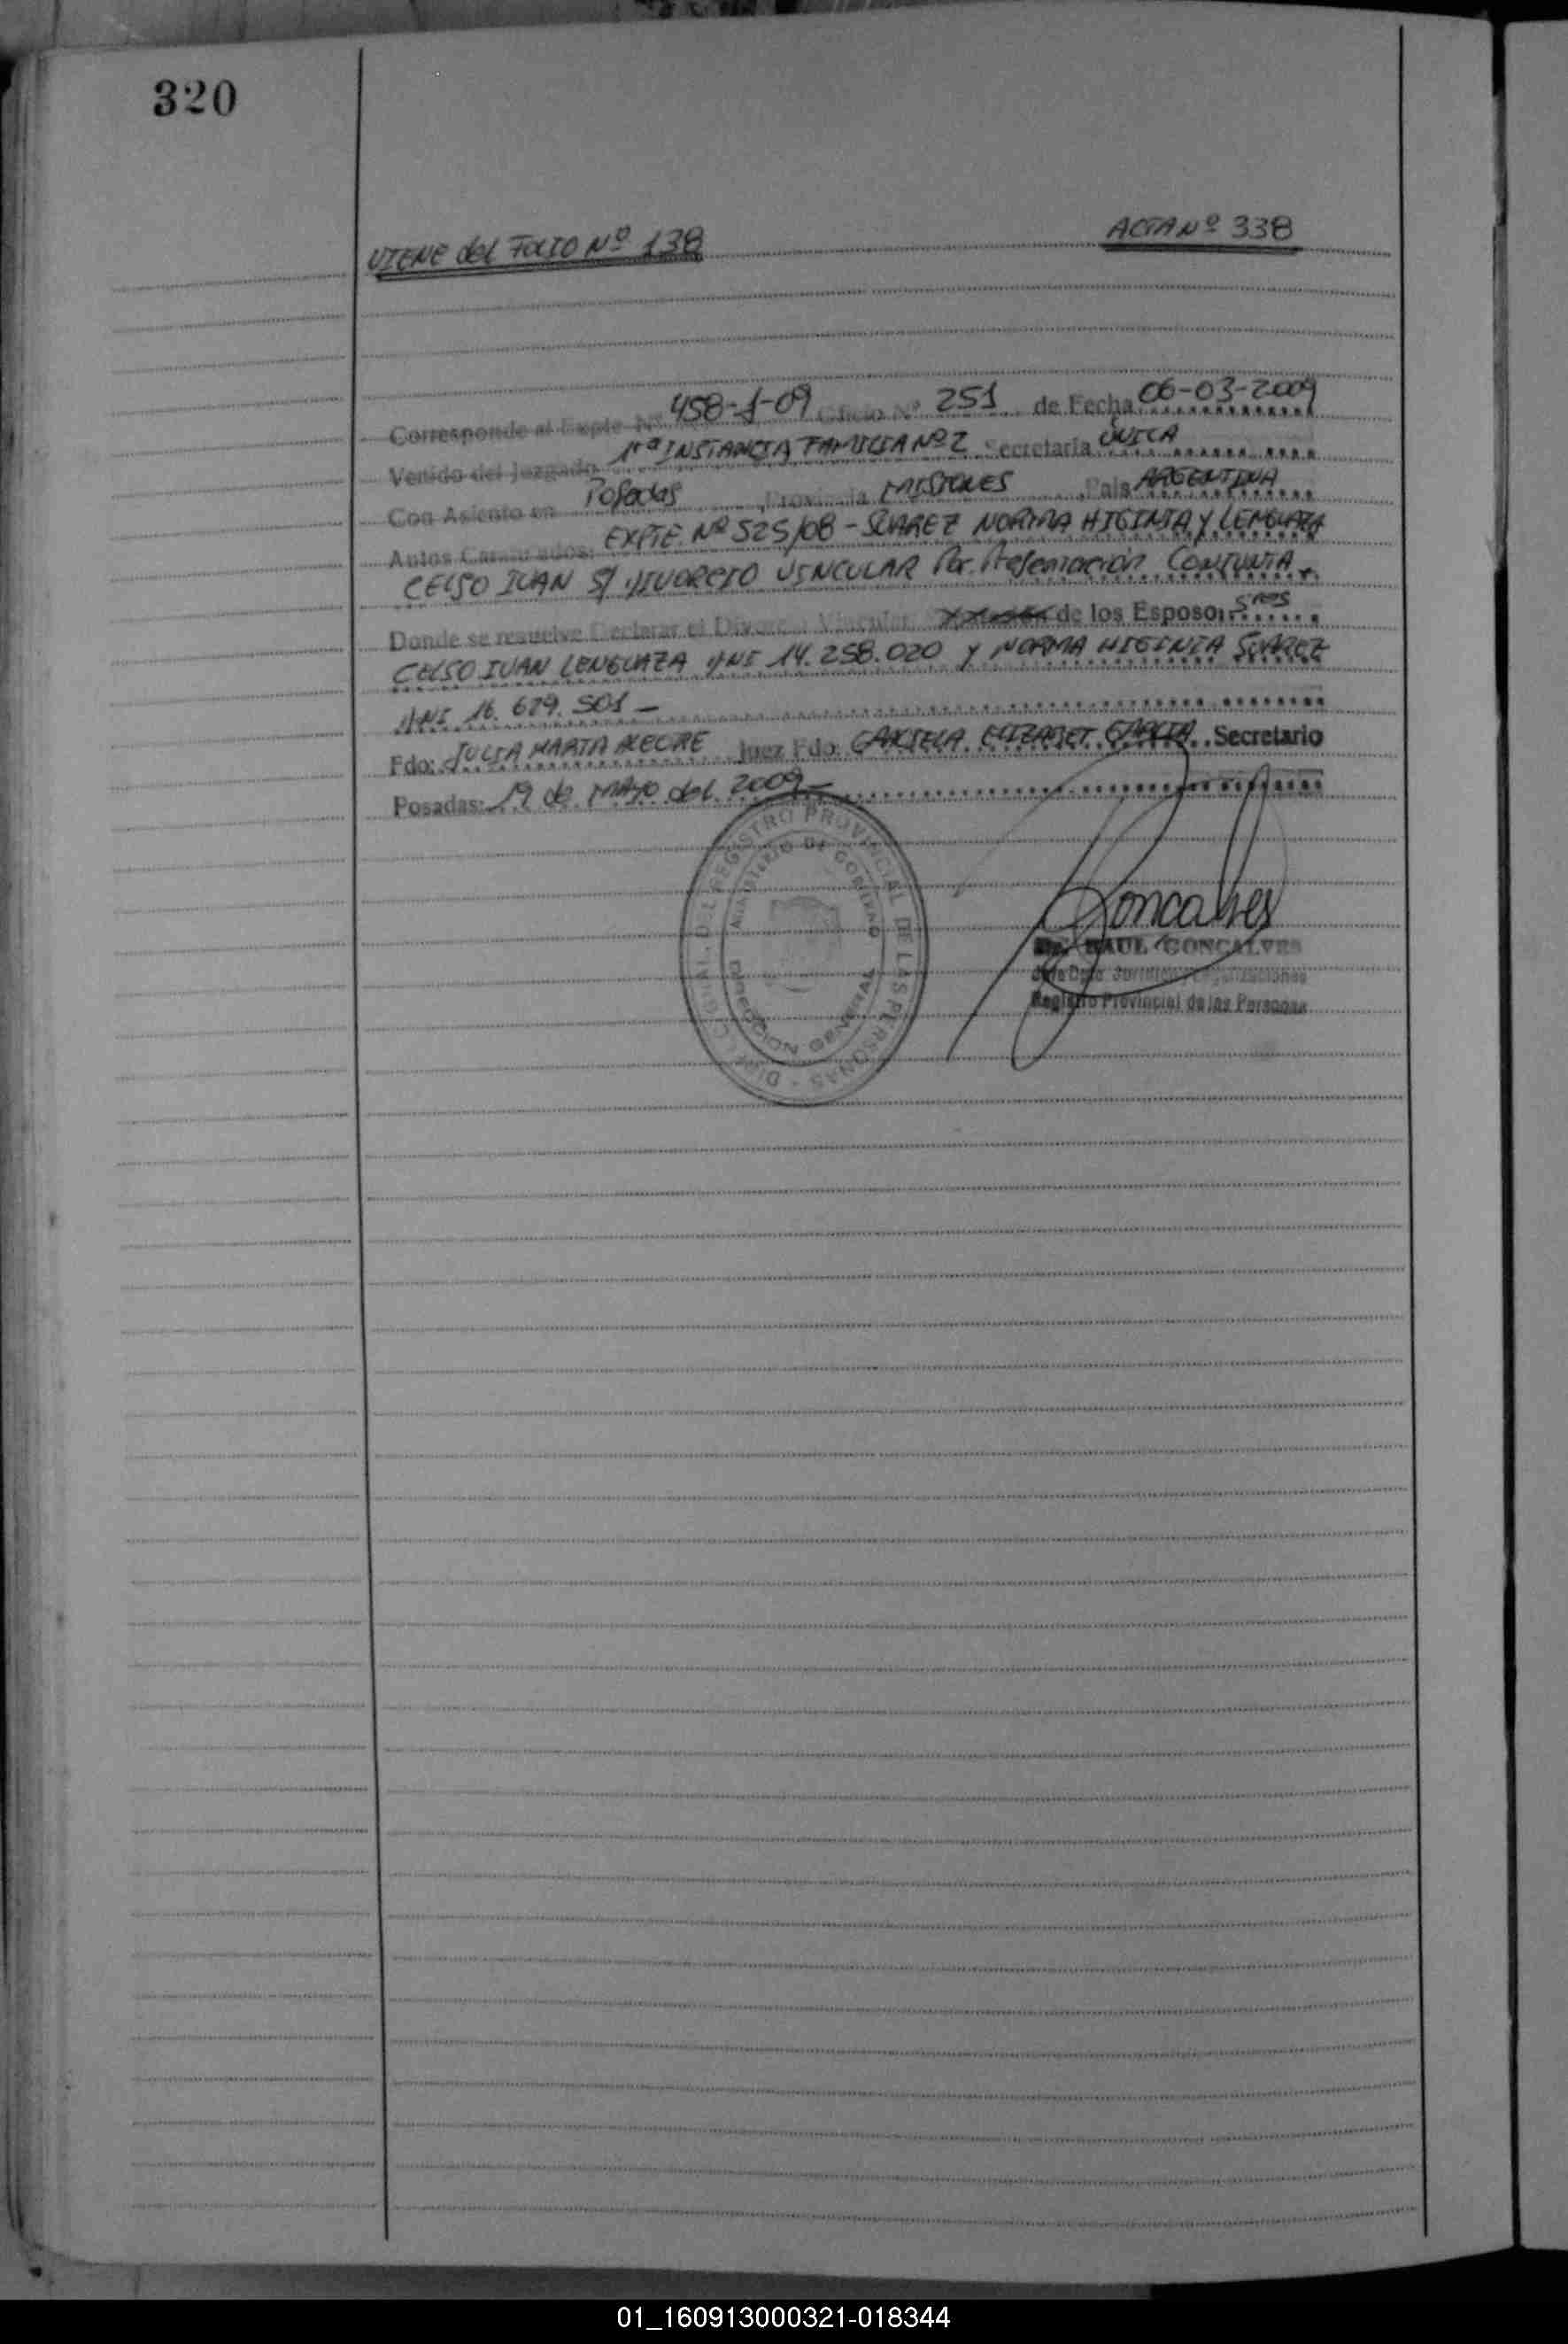 320
VIENE del FOLIO Nº 138
ACTA Nº 338
Corresponde al Expte Nº 458-J-09 Oficio Nº 251 de Fecha 06-03-2009
Venido del Juzgado 1ra INSTANCIA FAMILIA Nº 2 Secretaria ÚNICA
Con Asiento en Posadas Provincia MISIONES Pais ARGENTINA
Autos Caratulados: EXPTE Nº 525/08 - SUAREZ NORMA HIGINIA Y LENGUAZA
CELSO IVAN S/ DIVORCIO VINCULAR Por Presentación CONJUNTA.
Donde se resuelve Declarar el Divorcio Vincular de los Esposos: SRES
CELSO IVAN LENGUAZA DNI 14.258.020 y NORMA HIGINIA SUAREZ
DNI 16.679.501 -
Fdo: JULIA MARTA ALEGRE Juez Fdo: ELIZABET GARCIA Secretario
Posadas: 19 de MAYO del 2009
DIRECC. GRAL. DEL REGISTRO PROVINCIAL DE LAS PERSONAS
MINISTERIO DE GOBIERNO
DIRECCION GENERAL
Goncalves
RAUL GONCALVES
Registro Provincial de las Personas
01_160913000321-018344